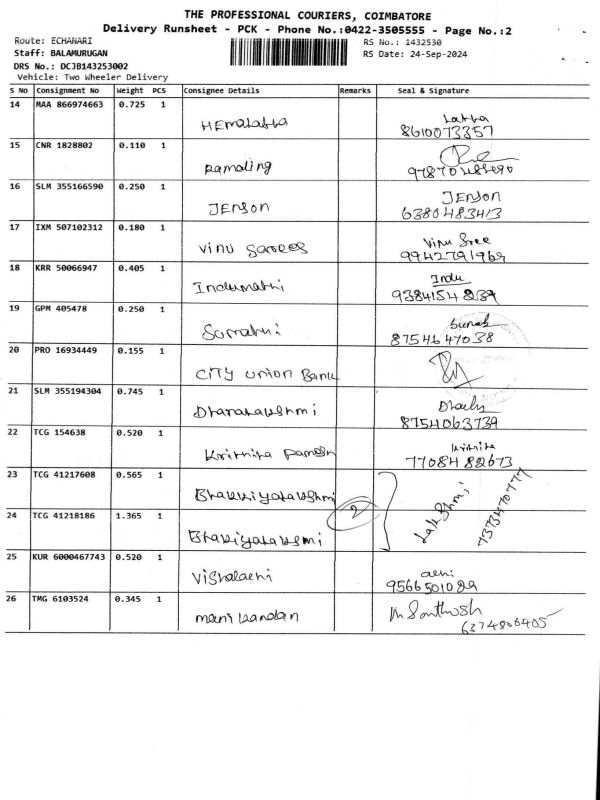 THE PROFESSIONAL COURIERS, COIMBATORE
Delivery Runsheet - PCK - Phone No.:0422-3505555 - Page No.:2
Route: ECHANARI RS No.: 1432530
Staff: BALAMURUGAN RS Date: 24-Sep-2024
DRS No.: DCJB143253002
Vehicle: Two Wheeler Delivery
S No Consignment No Weight PCS Consignee Details Remarks Seal & Signature
14 MAA 866974663 0.725 1
HEmalatha Latha
8610073357
15 CNR 1828802 0.110 1
Ramaling
16 SLM 355166590 0.250 1
JENSON JENSON
6380483413
17 IXM 507102312 0.180 1
Vinu Vinu Sree
9942791969
18 KRR 50066947 0.405 1
Indumathi Indu
9384154
19 GPM 405478 0.250 1
Sumathi
8754647038
20 PRO 16934449 0.155 1
CITY UNION BANK
21 SLM 355194304 0.745 1
Dhanalakshmi
8754063739
22 TCG 154638 0.520 1
Krithika Krithika
7708482673
23 TCG 41217608 0.565 1
Bhakkiyalakshmi
2 Lakshmi 7373470777
24 TCG 41218186 1.365 1
Bhakiyalakshmi
25 KUR 6000467743 0.520 1
Vishalachi
9566501089
26 TMG 6103524 0.345 1
manikandan M Santhosh
6374806405